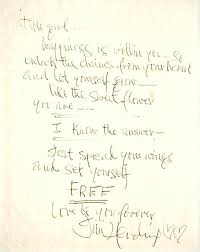 little girl.....
happiness is within you....so
unlock the chains from your heart
and let yourself grow—
like the sweet flower
you are.....
I know the answer—
Just spread your wings
and set yourself
FREE
Love to you forever
Jimi Hendrix